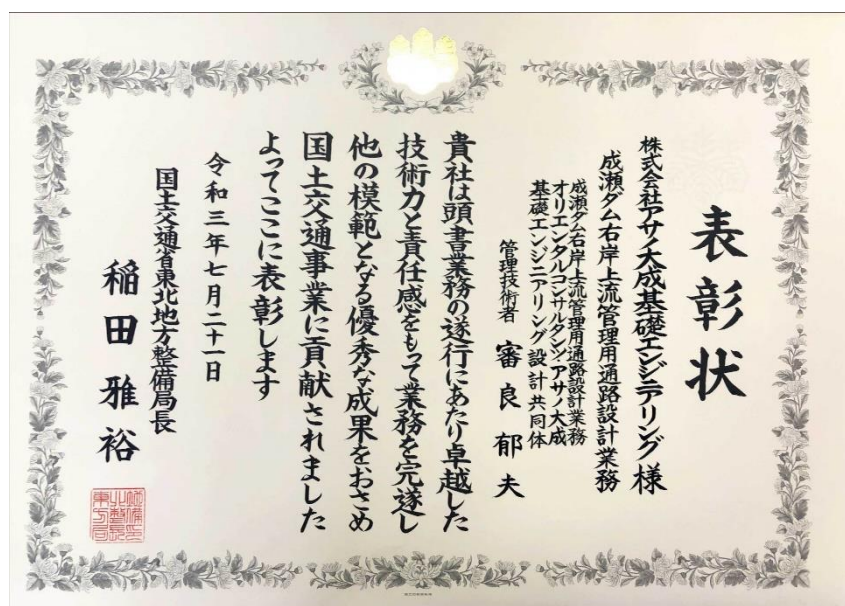 表彰状
株式会社アサノ大成基礎エンジニアリング様
成瀬ダム右岸上流管理用通路設計業務
成瀬ダム右岸上流管理用通路設計業務
オリエンタルコンサルタンツ・アサノ大成
基礎エンジニアリング設計共同体
管理技術者 審良郁夫
貴社は頭書業務の遂行にあたり卓越した
技術力と責任感をもって業務を完遂し
他の模範となる優秀な成果をおさめ
国土交通事業に貢献されました
よってここに表彰します
令和三年七月二十一日
国土交通省東北地方整備局長
稲田雅裕